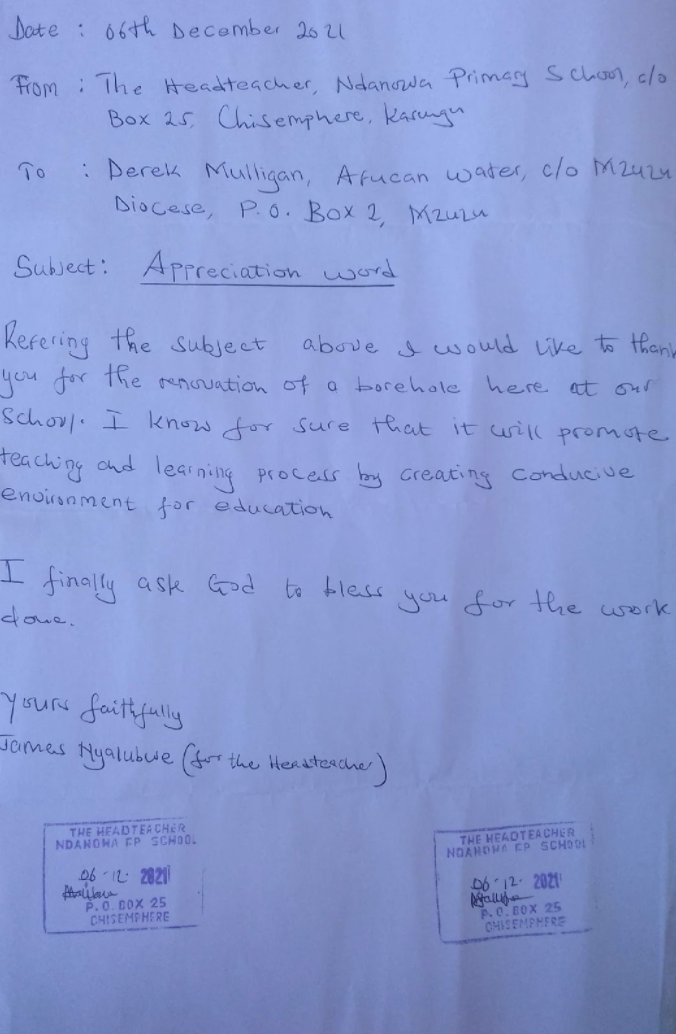 Date : 06th December 2021
From : The Headteacher, Ndanowa Primary School, c/o
Box 25, Chisemphere, Kasungu
To : Derek Mulligan, African water, c/o Mzuzu
Diocese, P.O. Box 2, Mzuzu
Subject: Appreciation word
Refering the subject above I would like to thank
you for the renovation of a borehole here at our
School. I know for sure that it will promote
teaching and learning process by creating conducive
environment for education
I finally ask God to bless you for the work
done.
Yours faithfully
James Nyalubwe (for the Headteacher)
THE HEADTEACHER
NDANOWA FP SCHOOL
06-12-2021
P.O. BOX 25
CHISEMPHERE
THE HEADTEACHER
NDANOWA FP SCHOOL
06-12-2021
P.O. BOX 25
CHISEMPHERE